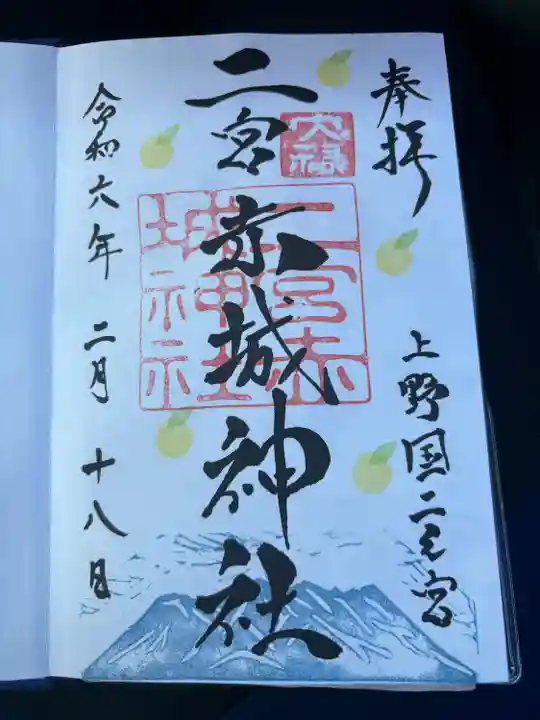 奉拝
上野国二之宮
大禄
二宮赤城神社
二宮赤城神社
令和六年 二月 十八日